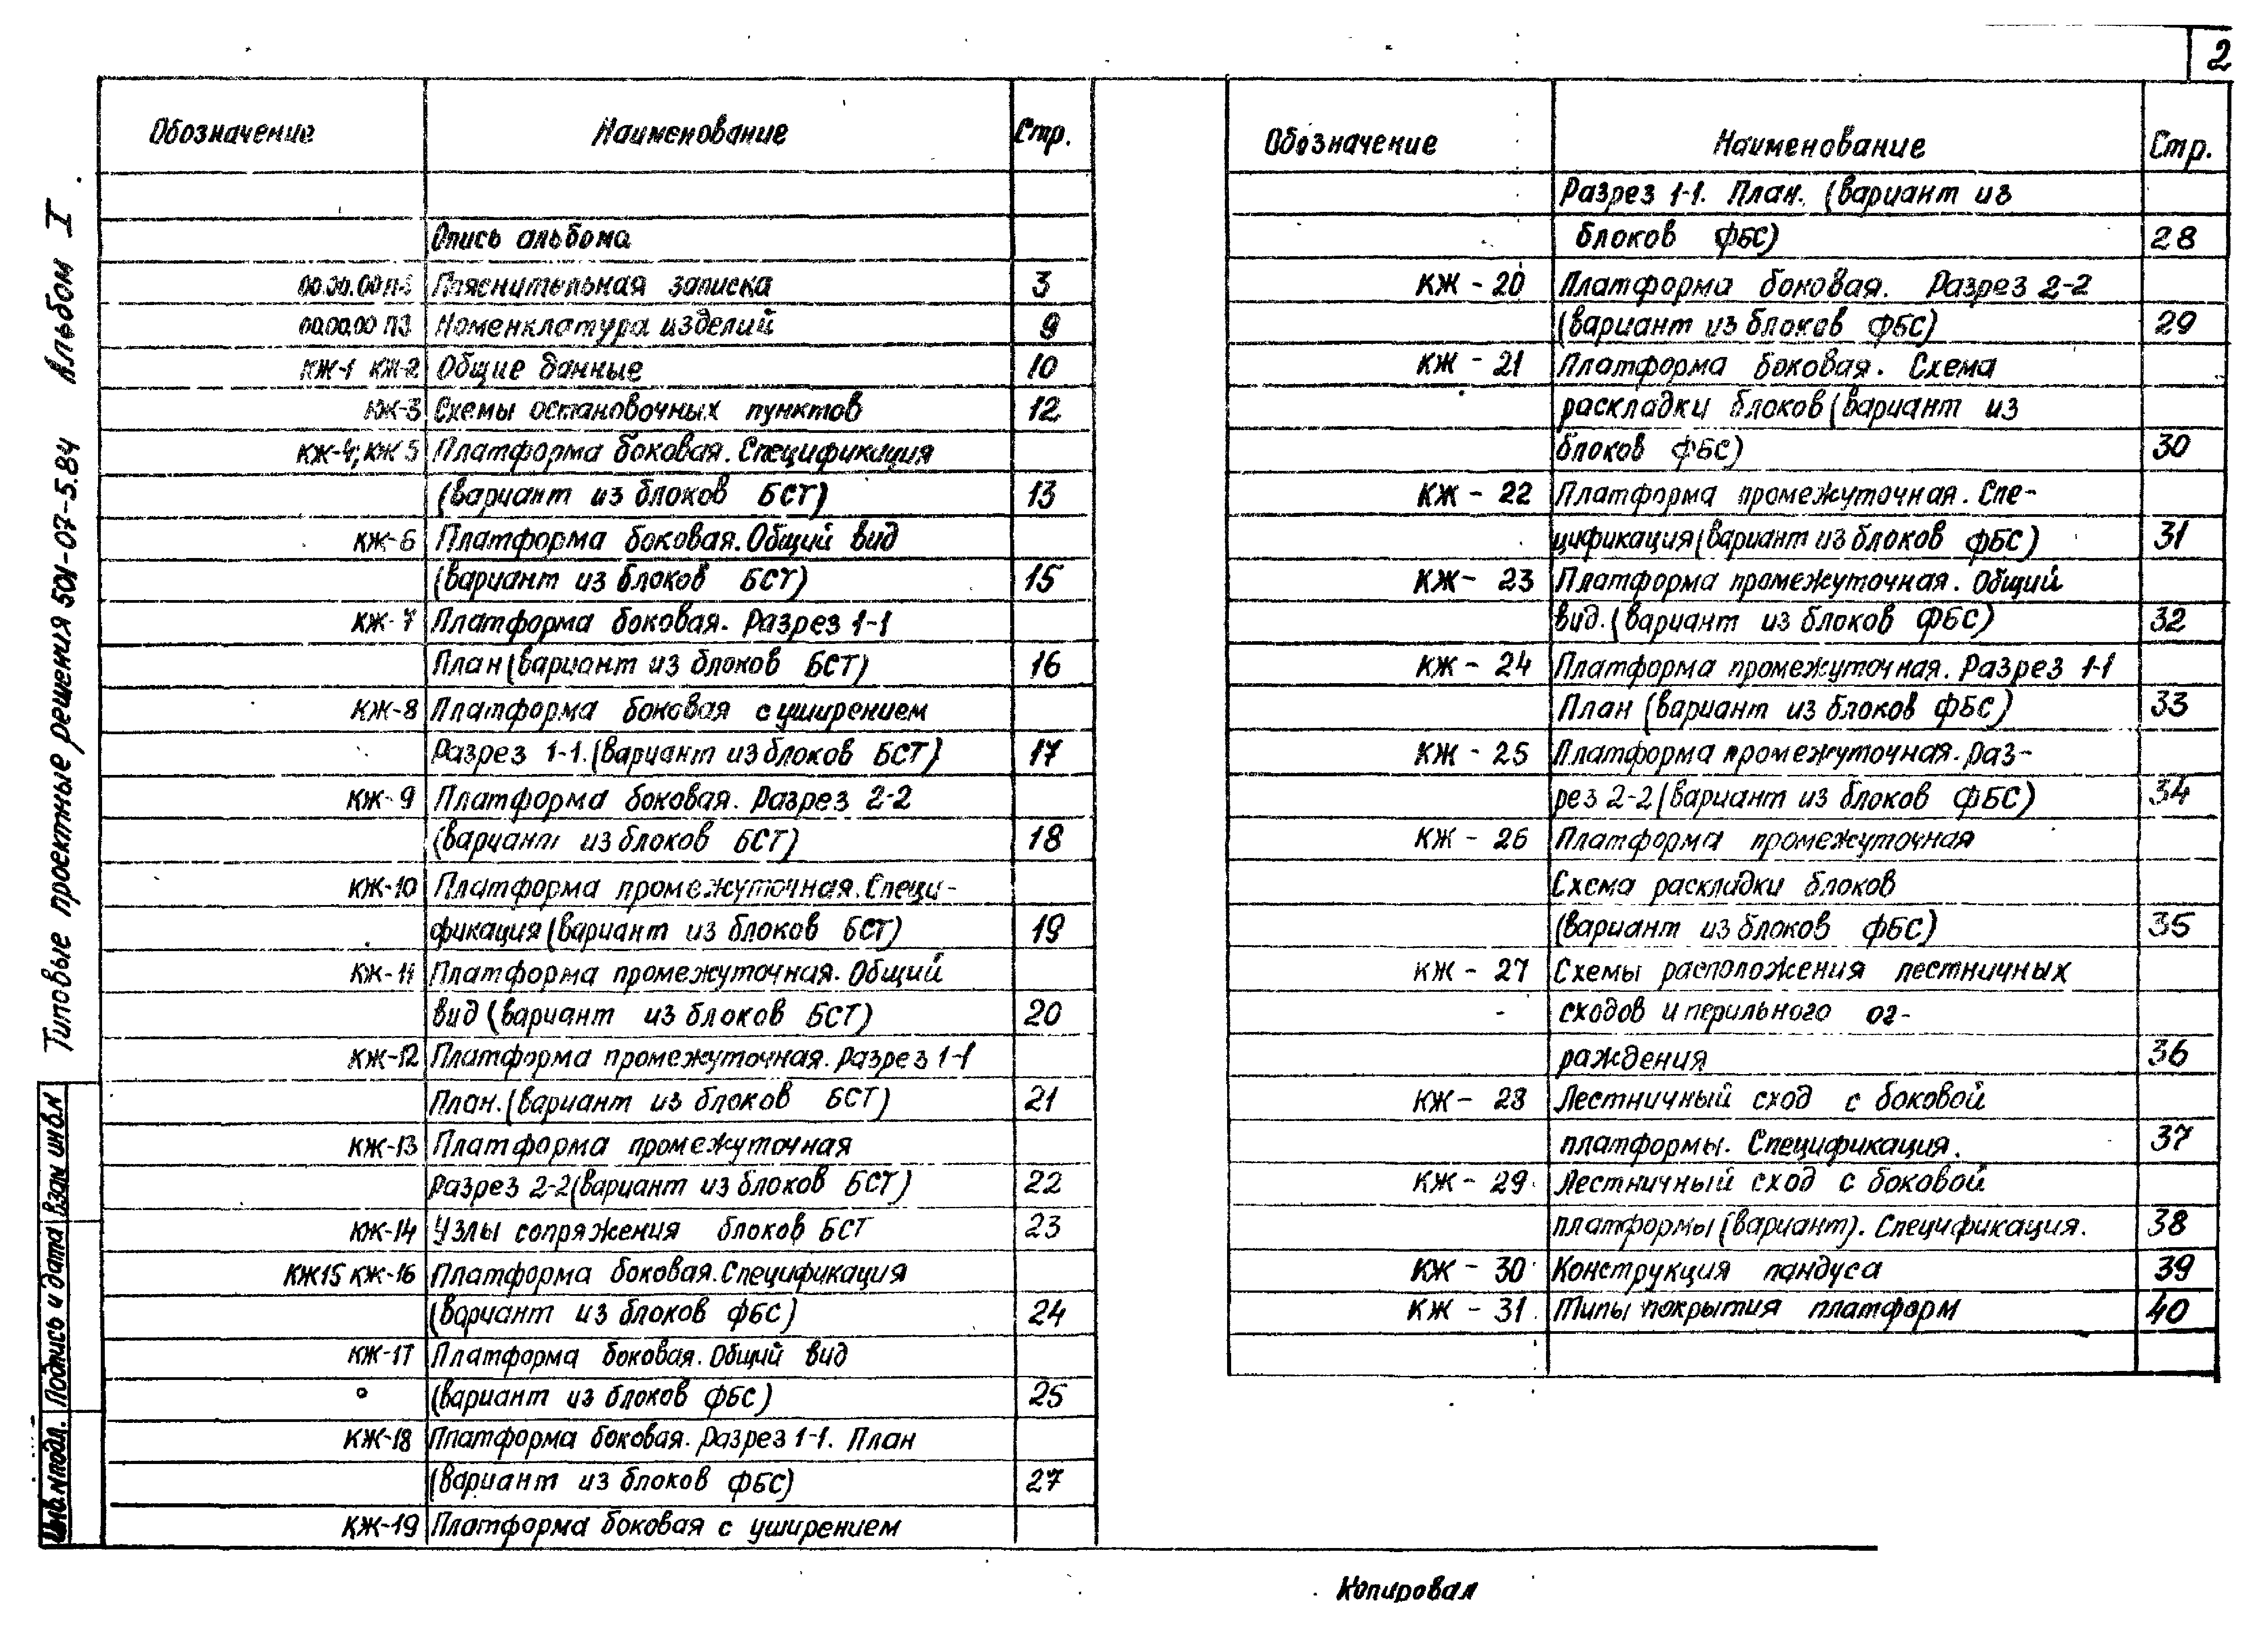 2
Типовые проектные решения 501-07-5.84 Альбом I
Обозначение Наименование Стр.
Опись альбома
00.00.00 ПЗ Пояснительная записка 3
00.00.00 ПЗ Номенклатура изделий 9
КЖ-1 КЖ-2 Общие данные 10
КЖ-3 Схемы остановочных пунктов 12
КЖ-4; КЖ 5 Платформа боковая. Спецификация
(вариант из блоков БСТ) 13
КЖ-6 Платформа боковая. Общий вид
(вариант из блоков БСТ) 15
КЖ-7 Платформа боковая. Разрез 1-1
План (вариант из блоков БСТ) 16
КЖ-8 Платформа боковая с уширением
Разрез 1-1. (вариант из блоков БСТ) 17
КЖ-9 Платформа боковая. Разрез 2-2
(вариант из блоков БСТ) 18
КЖ-10 Платформа промежуточная. Специ-
фикация (вариант из блоков БСТ) 19
КЖ-11 Платформа промежуточная. Общий
вид (вариант из блоков БСТ) 20
КЖ-12 Платформа промежуточная. Разрез 1-1
План. (вариант из блоков БСТ) 21
КЖ-13 Платформа промежуточная
Разрез 2-2 (вариант из блоков БСТ) 22
КЖ-14 Узлы сопряжения блоков БСТ 23
КЖ15 КЖ-16 Платформа боковая. Спецификация
(вариант из блоков ФБС) 24
КЖ-17 Платформа боковая. Общий вид
(вариант из блоков ФБС) 25
КЖ-18 Платформа боковая. Разрез 1-1. План
(вариант из блоков ФБС) 27
КЖ-19 Платформа боковая с уширением
Обозначение Наименование Стр.
Разрез 1-1. План. (вариант из
блоков ФБС) 28
КЖ - 20 Платформа боковая. Разрез 2-2
(вариант из блоков ФБС) 29
КЖ - 21 Платформа боковая. Схема
раскладки блоков (вариант из
блоков ФБС) 30
КЖ - 22 Платформа промежуточная. Спе-
цификация (вариант из блоков ФБС) 31
КЖ - 23 Платформа промежуточная. Общий
вид. (вариант из блоков ФБС) 32
КЖ - 24 Платформа промежуточная. Разрез 1-1
План (вариант из блоков ФБС) 33
КЖ - 25 Платформа промежуточная. Раз-
рез 2-2 (вариант из блоков ФБС) 34
КЖ - 26 Платформа промежуточная
Схема раскладки блоков
(вариант из блоков ФБС) 35
КЖ - 27 Схемы расположения лестничных
сходов и перильного ог-
раждения 36
КЖ - 28 Лестничный сход с боковой
платформы. Спецификация. 37
КЖ - 29 Лестничный сход с боковой
платформы (вариант). Спецификация. 38
КЖ - 30 Конструкция пандуса 39
КЖ - 31 Типы покрытия платформ 40
Инв.Nподл. Подпись и дата Взам инв.N
Копировал